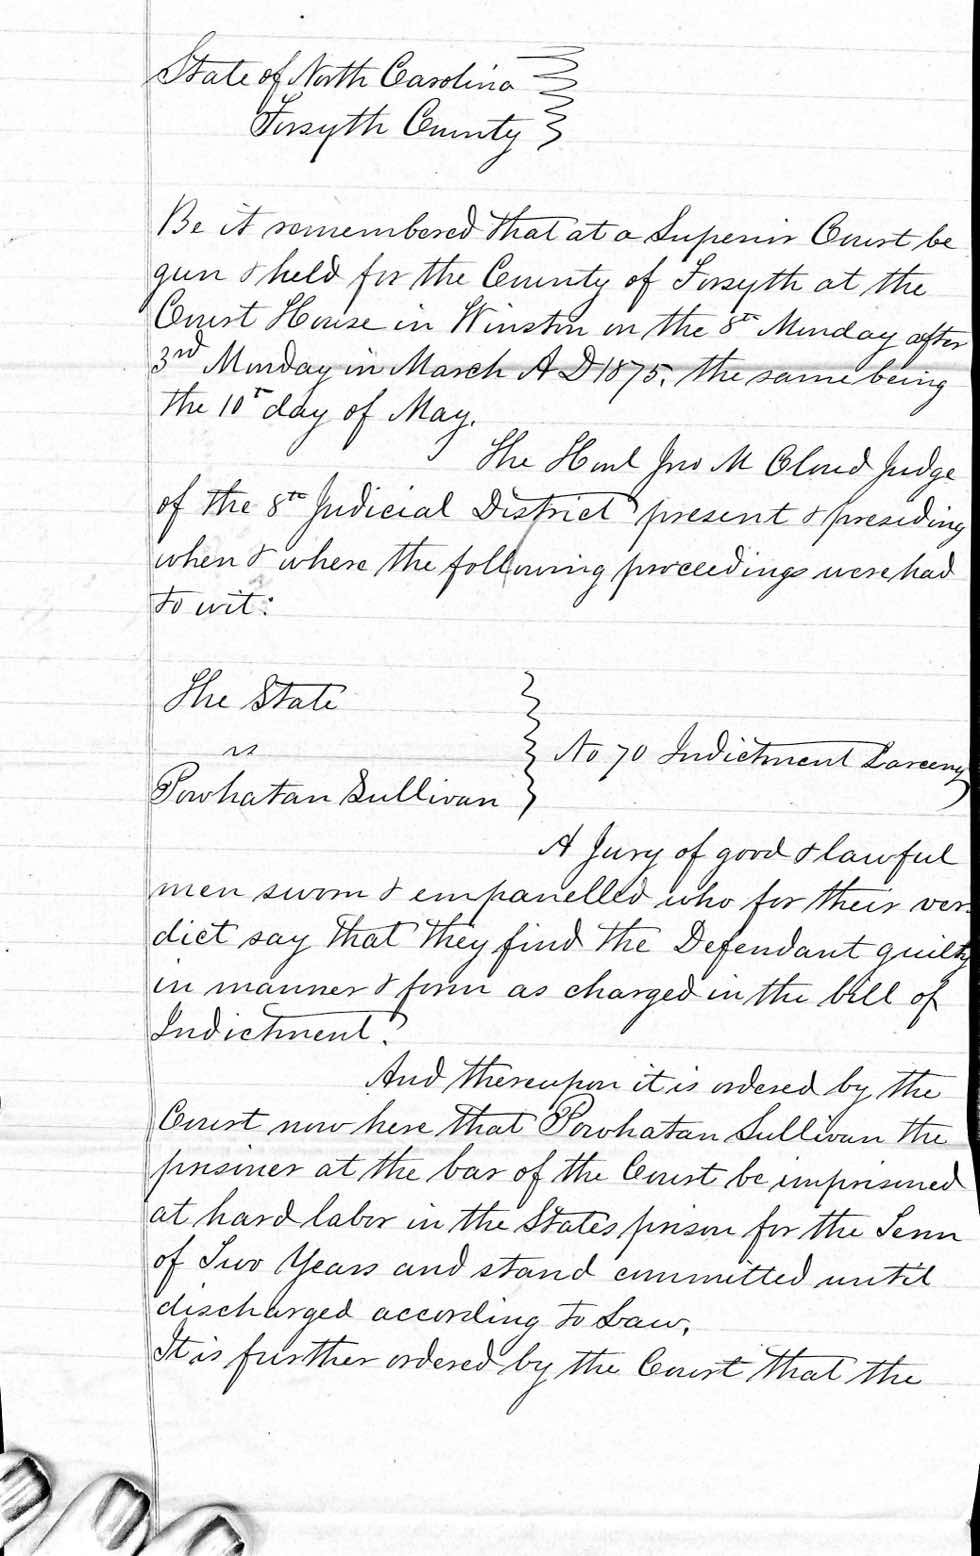 State of North Carolina
Forsyth County
Be it remembered that at a Superior Court be
gun & held for the County of Forsyth at the
Court House in Winston on the 8th Monday after
3rd Monday in March A D 1875, the same being
the 10th day of May.
The Honl Jno M Cloud Judge
of the 8th Judicial District present & presiding
when & where the following proceedings were had
to wit:
The State
vs
Powhatan Sullivan
No 70 Indictment Larceny
A Jury of good & lawful
men sworn & empanelled who for their ver-
dict say that they find the Defendant guilty
in manner & form as charged in the bill of
Indictment.
And thereupon it is ordered by the
Court now here that Powhatan Sullivan the
prisiner at the bar of the Court be imprisoned
at hard labor in the States prison for the Term
of Two Years and stand committed until
discharged according to Law.
It is further ordered by the Court that the